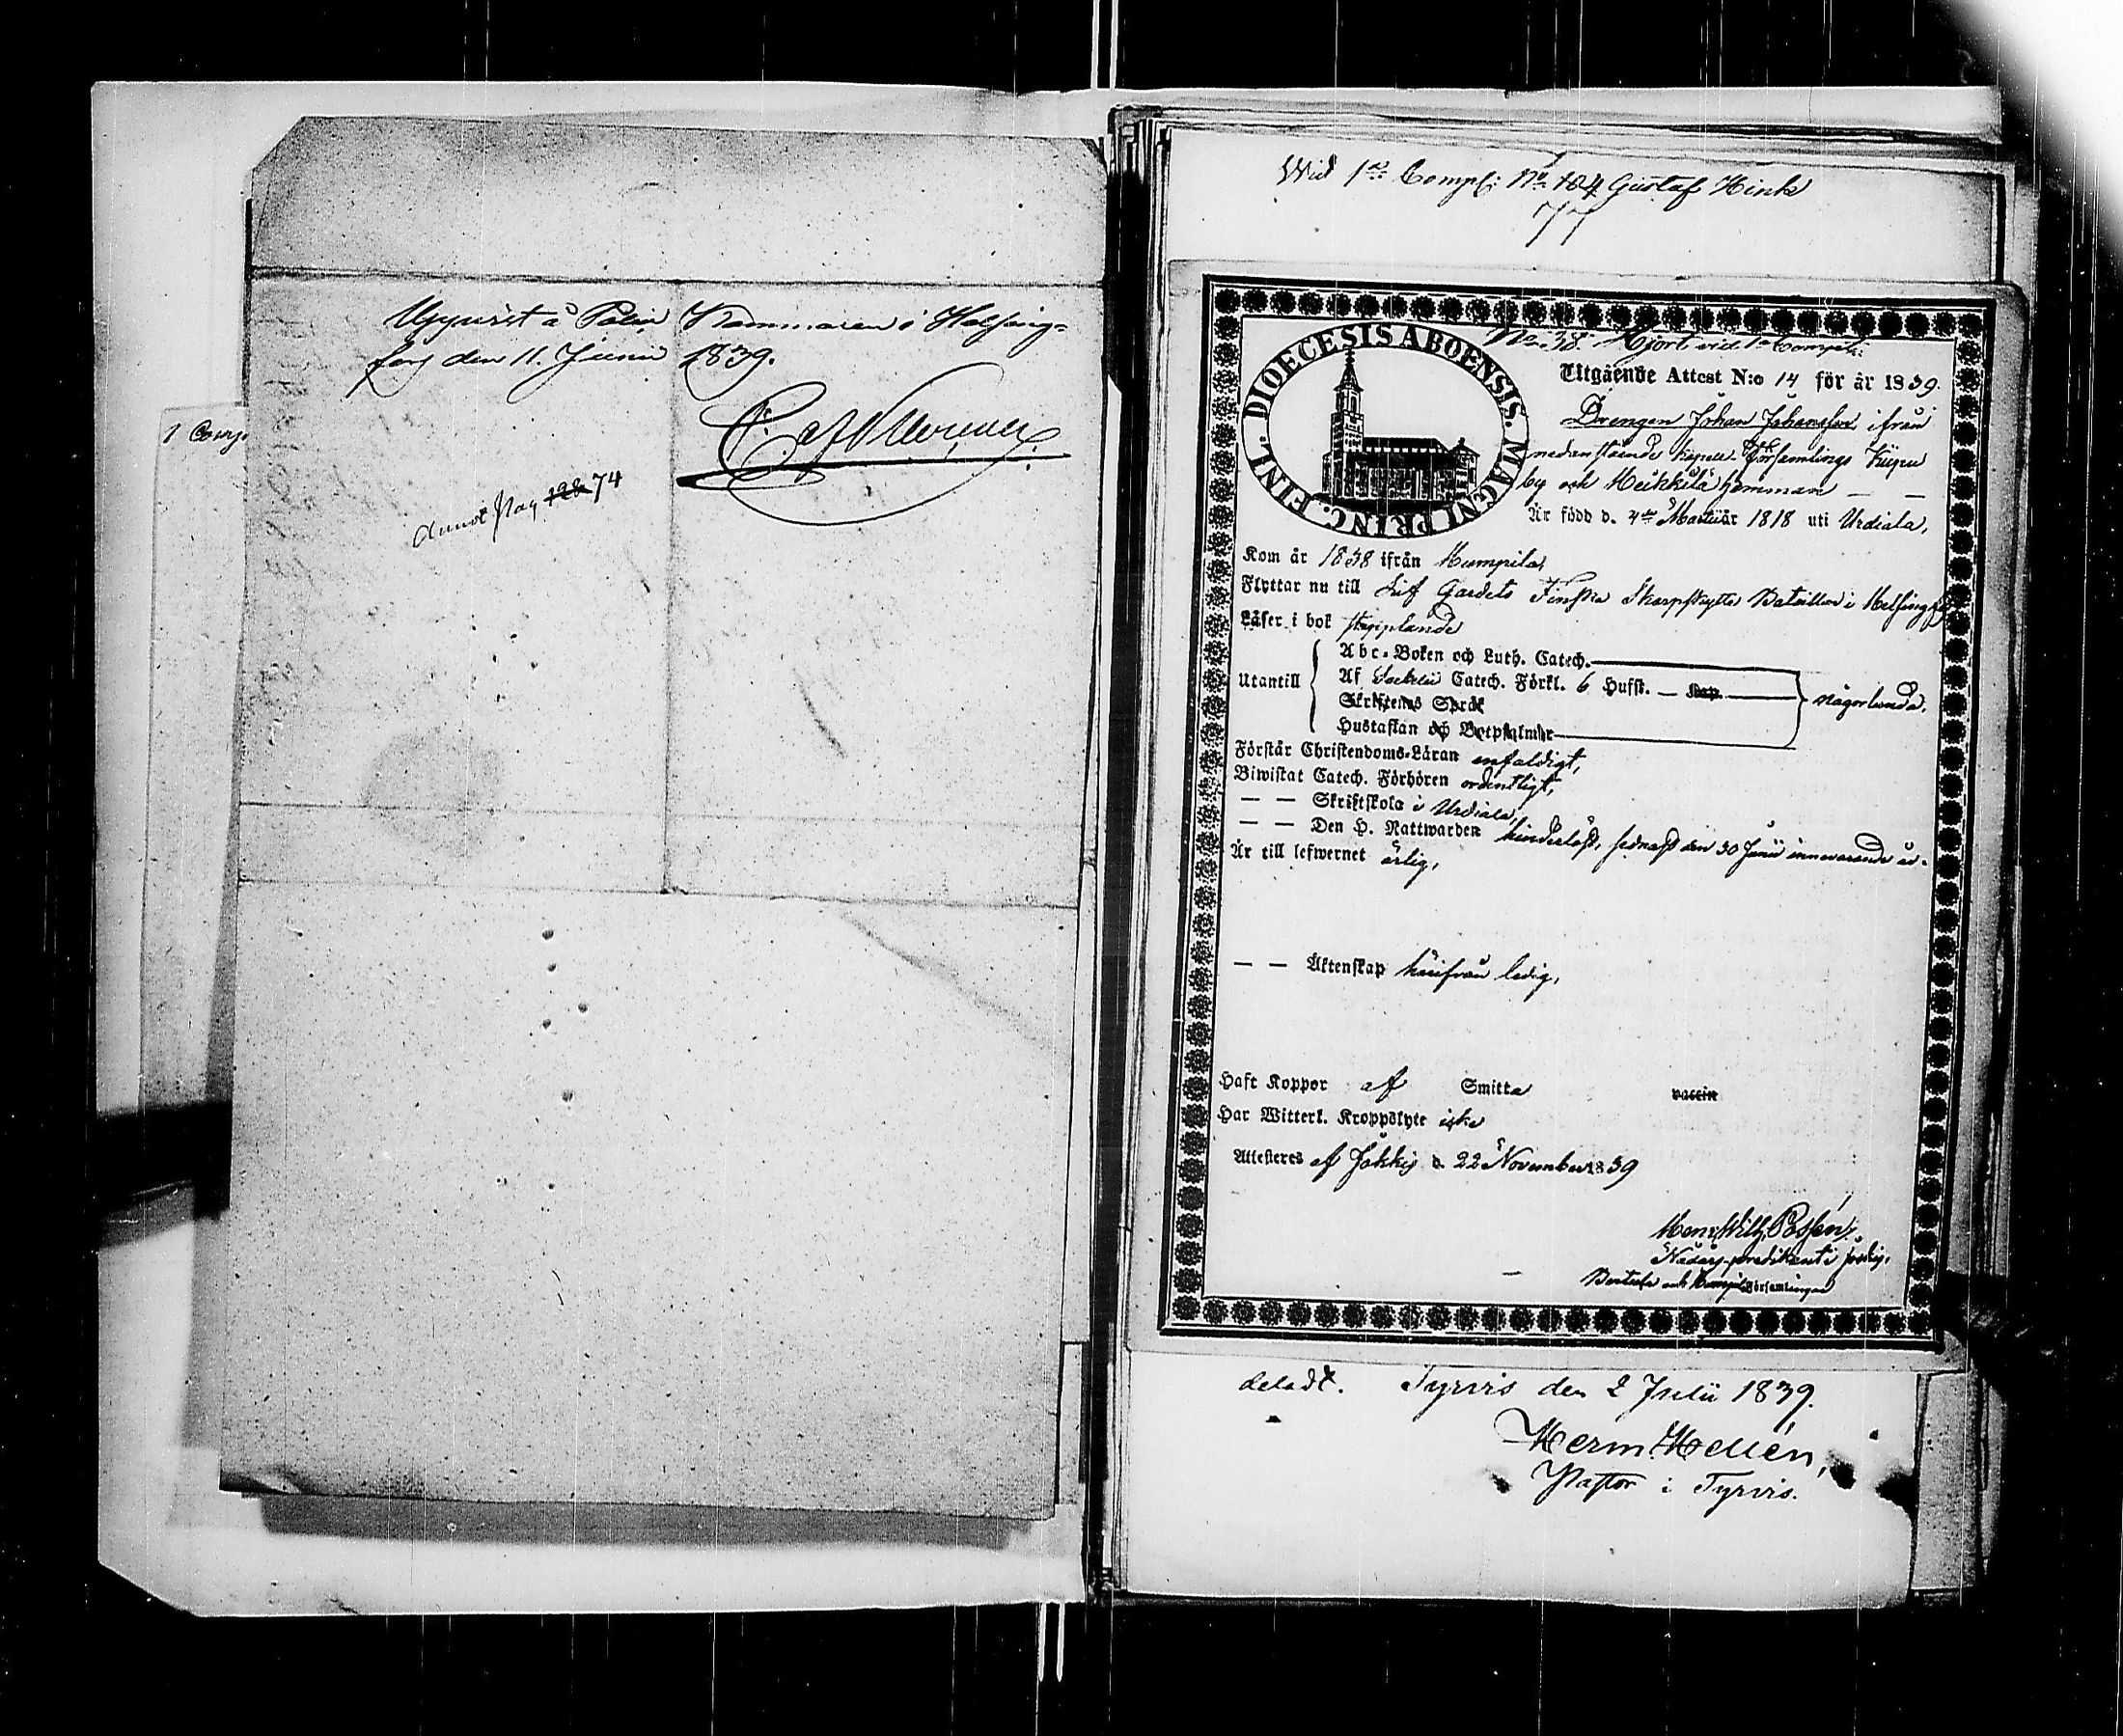 Uppvist å Polis Kammaren i Helsing-
fors den 11. Junii 1839.
Annot Pag 128 74
1 Comp.
Wid 1sta Comp: No 104 Gustaf Hink
77
No 38 Hjort vid 1a Comp:
DIOECESIS ABOENSIS. MAGNI PRINC. FINL.
Utgående Attest N:o 14 för år 1839.
Drengen Johan Johansson ifrån
nedanstående Kapell-Församlings
by och Heikkilä hemman — —
Är född d. 4de Martii år 1818 uti Urdiala,
Kom år 1838 ifrån Humpila,
Flyttar nu till Lif Gardets Finska Skarpskytte Bataillon i Helsingfors
Läser i bok
Utantill
Abc-Boken och Luth. Catech.
Af Catech. Förkl. 6 Hufst. — Kap.
Skriftenes Språk
Hustaflan och Botpsalmer
någorlunda,
Förstår Christendoms-Läran enfaldigt,
Biwistat Catech. Förhören ordentligt,
— — Skriftskola i Urdiala,
— — Den H. Nattwarden sednast den 30 Junii innevarande år.
Är till lefwernet ärlig,
— — Äktenskap härifrån ledig,
Haft Koppor af Smitta vaccin
Har Witterl. Kroppslyte icke
Attesteres af Jokkis d. 22 November 1839
Henr. Wilh. Possén,
predikant i Jockis,
och Humpila Församlingar
deladt. Tyrvis den 2 Julii 1839.
Herm. Hellén,
Pastor i Tyrvis.